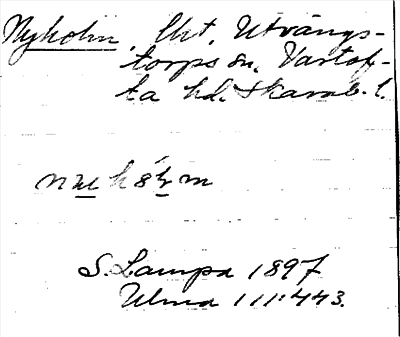 Nyholm, lht, Utvängs-
torps sn. Vartof-
ta hd. Skarab. l.
S. Lampa 1897
Ulma 111:443.